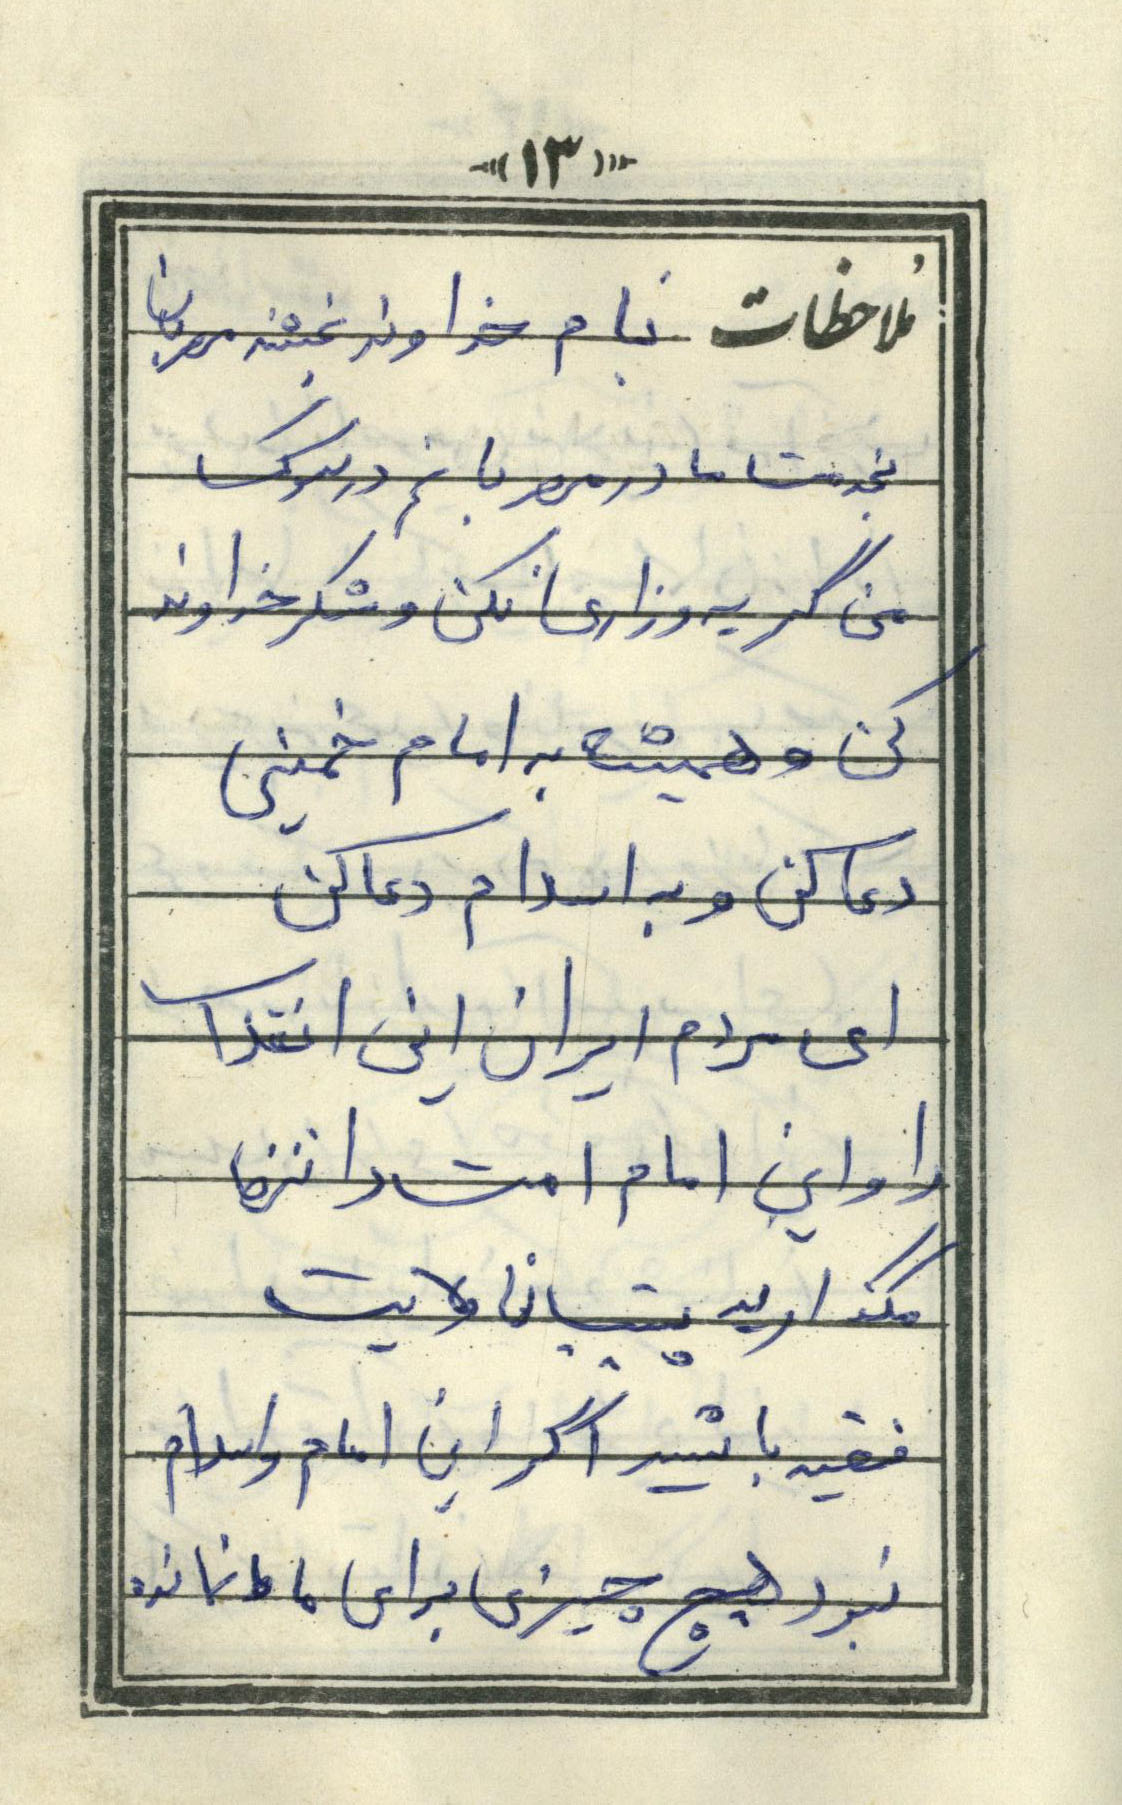 «۱۳»
ملاحظات بنام خداوند بخشنده مهربان
بخدمت مادر مهربانم در سوگ
من گریه و زاری نکن و شکر خداوند
کن و همیشه به امام خمینی
دعا کن و به اسلام دعا کن
ای مردم ایران این انقلاب
را و این امام امت را تنها
مگذارید پشتیبان ولایت
فقیه باشید اگر این امام و اسلام
نبود هیچ چیزی برای ما نمانده